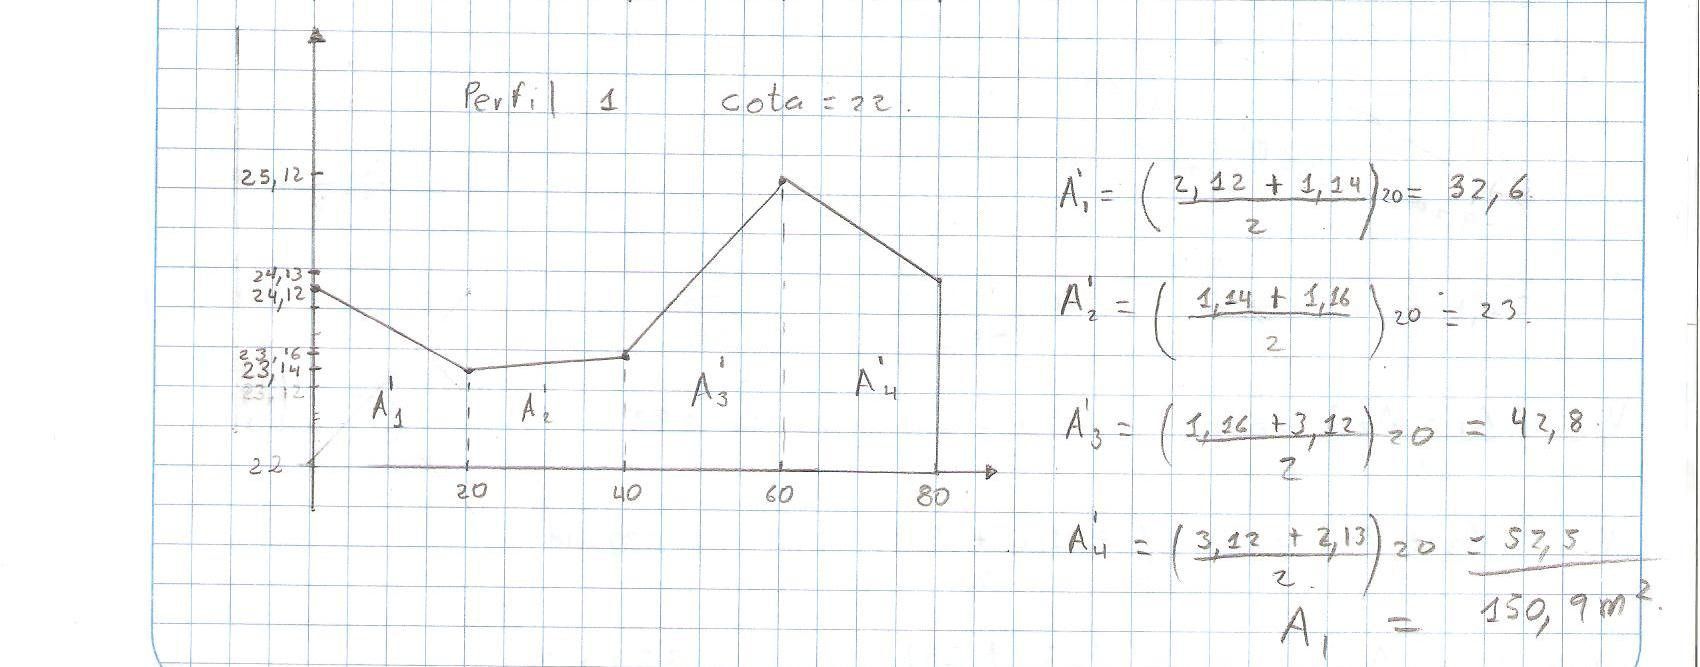 Perfil 1 cota = 22.
25,12
24,13
24,12
23,16
23,14
23,12
22
A'1 A'2 A'3 A'4
20 40 60 80
A'1 = (2,12 + 1,14 / 2) 20 = 32,6.
A'2 = (1,14 + 1,16 / 2) 20 = 23.
A'3 = (1,16 + 3,12 / 2) 20 = 42,8.
A'4 = (3,12 + 2,13 / 2.) 20 = 52,5
A1 = 150,9 m².